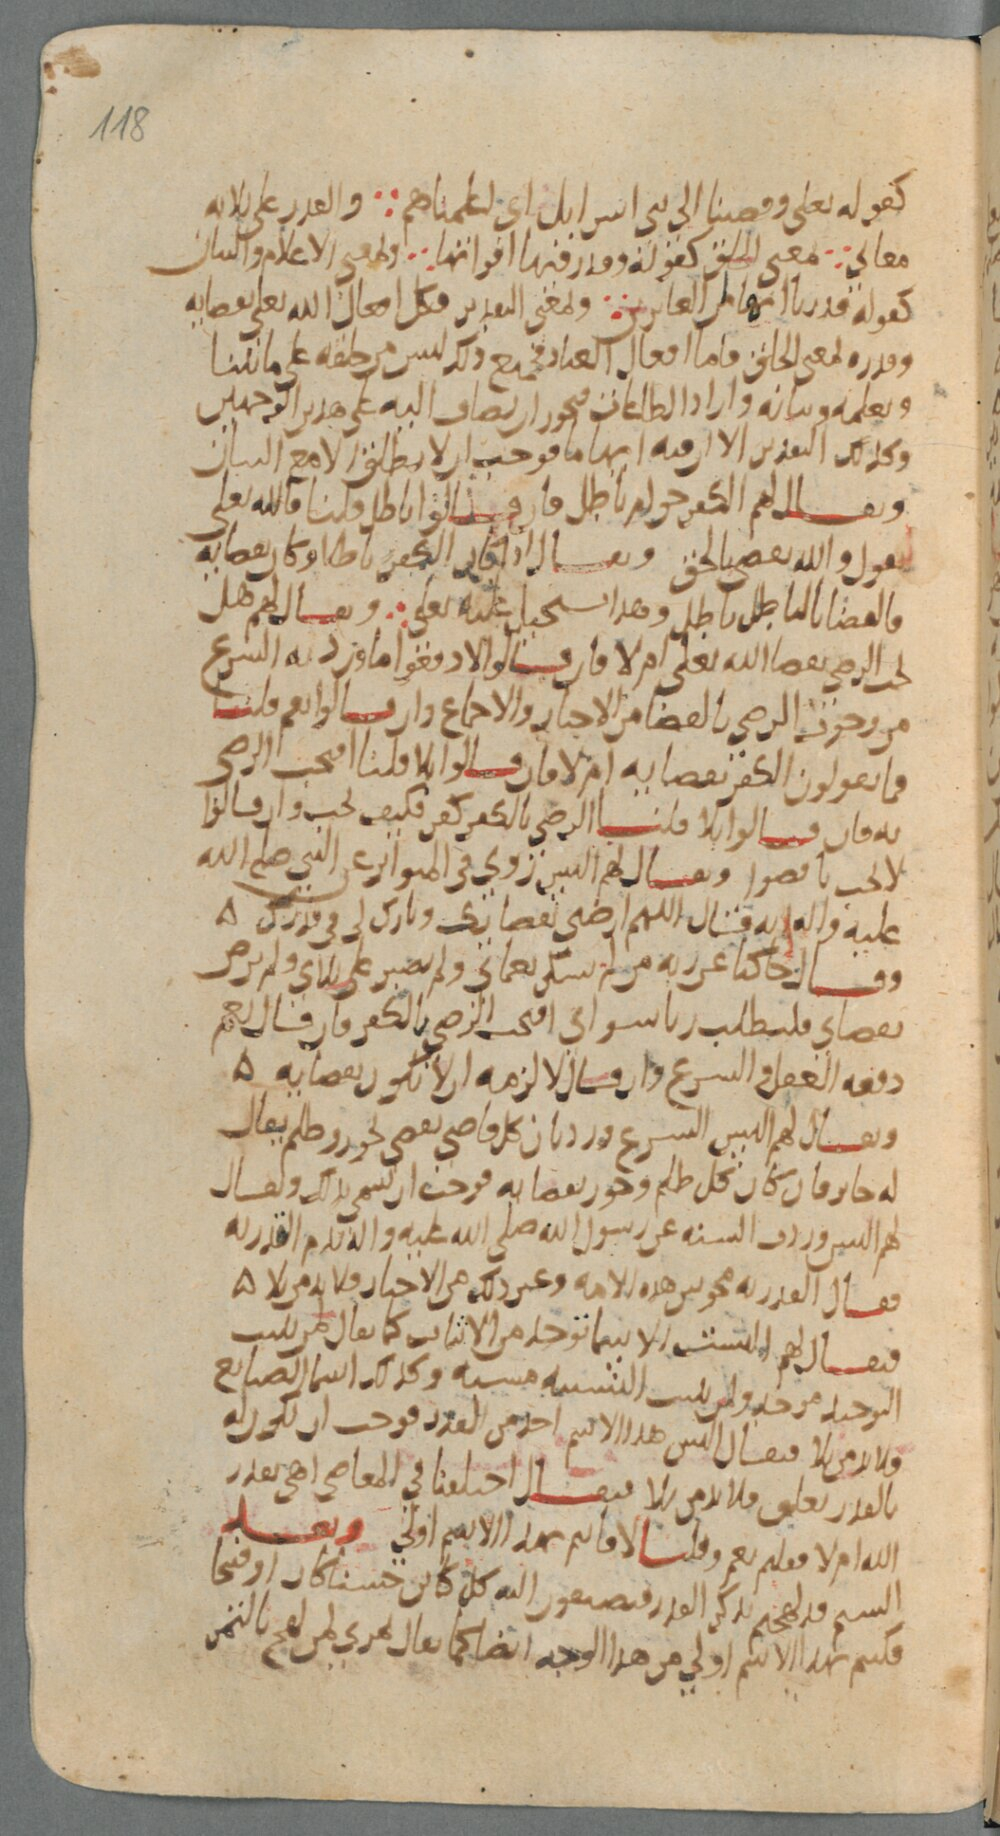 118
كقوله تعلى وقضينا الى بني اسرايل اي اعلمناهم ∴ والقدر على ثلاثه
معاني ∴ بمعنى الخلق كقوله وقدر فيها اقواتها ∴ وبمعنى الاعلام والبيان
كقوله قدرنا انها من الغابرين ∴ وبمعنى التقدير فكل افعال الله تعلى بقضايه
وقدره بمعنى الخلق فاما افعال العباد فجميع ذلك ليس من خلقه على ما بينا
وبعلمه وبيانه وان اراد الطاعات فيجوز ان يضاف اليه على هذين الوجهين
وكذلك التقدير الا ان فيه ايهاما فوجب ان لا يطلق الا مع البيان
ويقال لهم الكفر حق ام باطل فان قالوا باطل قلنا فالله تعلى
يقول والله يقضي بالحق ويقال اذا كان الكفر باطلا وكان بقضايه
فالقضا بالباطل باطل وهذا يستحيل عليه تعلى ∴ ويقال لهم هل
يجب الرضى بقضا الله تعلى ام لا فان قالوا لا دفعوا ما ورد به الشرع
من وجوب الرضى بالقضا من الاخبار والاجماع وان قالوا نعم قلنا
فما تقولون الكفر بقضايه ام لا فان قالوا بلا قلنا افيجب الرضى
به فان قالوا بلا قلنا الرضى بالكفر كفر فكيف يجب وان قالوا
لا يجب ناقضوا ويقال لهم اليس روي في المتواتر عن النبي صلى الله
عليه واله انه قال اللهم ارضني بقضايك وبارك لي في قدرك ٥
وقال حاكيا عن ربه من لم يشكر نعماي ولم يصبر على بلاي ولم يرض
بقضاي فليطلب ربا سواي افيجب الرضى بالكفر فان قال نعم
دفعه العقل والشرع وان قال لا لزمه ان لا يكون بقضايه ٥
ويقال لهم اليس الشرع ورد بان كل قاضي يقضي بجور وظلم يقال
له جاير فان كان كل ظلم وجور بقضايه فوجب ان يسمى بذلك ويقال
لهم اليس وردت السنه عن رسول الله صلى الله عليه واله بذم القدريه
فقال القدريه مجوس هذه الامه وغير ذلك من الاخبار ولا بد من بلا ٥
فيقال لهم اليس الاسما توخذ من الاثبات كما يقال لمن يثبت
التوحيد موحد ولمن يثبت التشبيه مشبه وكذلك اسما الصنايع
ولا بد من بلا فيقال اليس هذا الاسم اخذ من القدر فوجب ان يكون له
بالقدر تعلق ولا بد من بلا فيقال اختلفنا في المعاصي اهي بقدر
الله ام لا فقلتم نعم وقلنا لا فانتم بهذا الاسم اولى ويقال
الستم قد لهجتم بذكر القدر فتضيفون اليه كل كاين حسنا كان او قبيحا
فكنتم بهذا الاسم اولى من هذا الوجه ايضا كما يقال تمري لمن لهج بالتمر